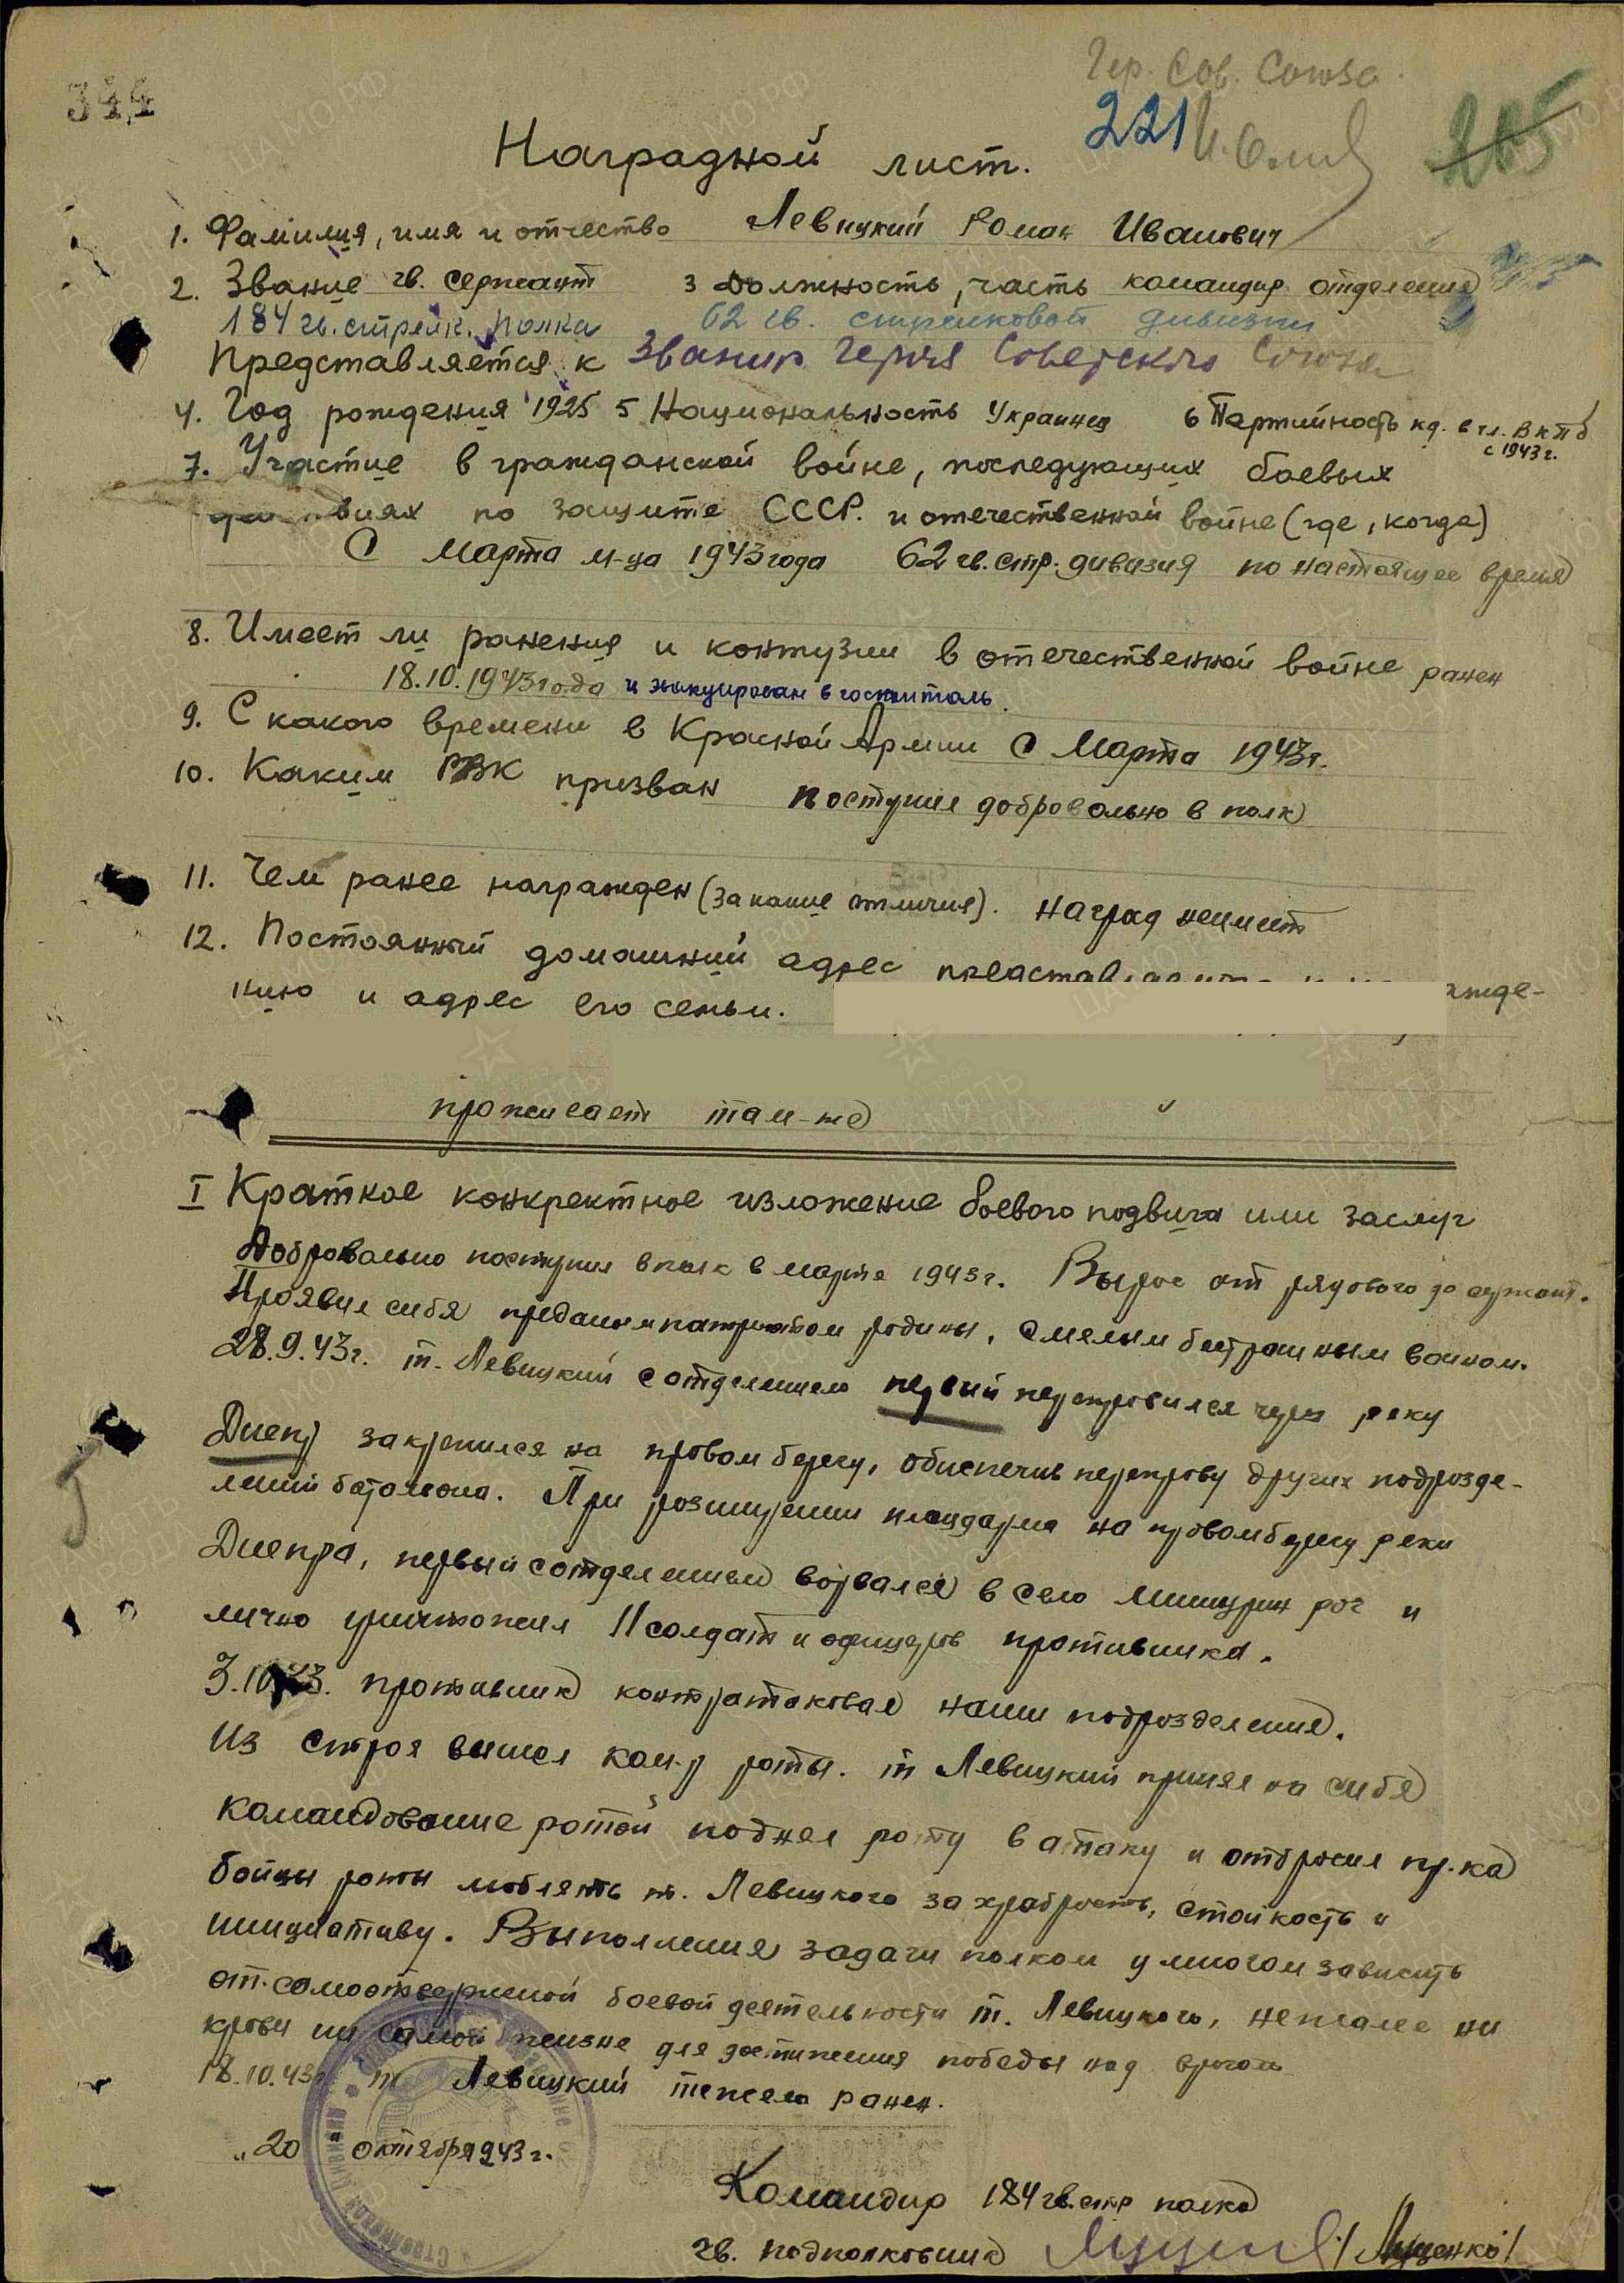 344
Гер. Сов. Союза
221
205
Наградной лист.
1. Фамилия, имя и отчество Левицкий Роман Иванович
2. Звание гв. сержант 3 должность, часть командир отделения
184 гв. стрелк. полка 62 гв. стрелковой дивизии
Представляется к Званию Героя Советского Союза
4. Год рождения 1925 5 Национальность Украинец 6 Партийность кд. в чл. ВКПб
с 1943 г.
7. Участие в гражданской войне, последующих боевых
действиях по защите СССР. и отечественной войне (где, когда)
С Марта м-ца 1943 года 62 гв. стр. дивизия по настоящее время
8. Имеет ли ранения и контузии в отечественной войне ранен
18.10.1943 года и эвакуирован в госпиталь.
9. С какого времени в Красной Армии С Марта 1943 г.
10. Каким РВК призван поступил добровольно в полк
11. Чем ранее награжден (за какие отличия). Наград неимеет
12. Постоянный домашний адрес
нию и адрес его семьи.
проживает там-же
I Краткое конкректное изложение боевого подвига или заслуг
Добровольно поступил в полк в марте 1943 г. Вырос от рядового до сержант.
Проявил себя преданым патриотом родины, смелым бестрашным воином.
28.9.43 г. т. Левицкий с отделением первый переправился через реку
Днепр закрепился на правом берегу, обиспечив переправу других подразде-
лений батальона. При розширении плацдарма на правом берегу реки
Днепра, первый с отделением ворвался в село Мишурин рог и
лично уничтожил 11 солдат и офицеров противника.
3.10.43. противник контратаковал наши подрозделения.
Из строя вышел ком-р роты. т Левицкий принял на себя
командование ротой поднял роту в атаку и отбросил пр.ка
Бойцы роты люблять т. Левицкого за храбрость, стойкость и
инициативу. Выполнения задачи полком у многом зависить
от самоотверженой боевой деятельности т. Левицкого, нежалея ни
крови ни самой жизне для достижения победы над врогом
18.10.43г. т. Левицкий тяжело ранен.
„20" октября 1943 г.
Командир 184 гв. стр полка
гв. подполковник /Луценко/